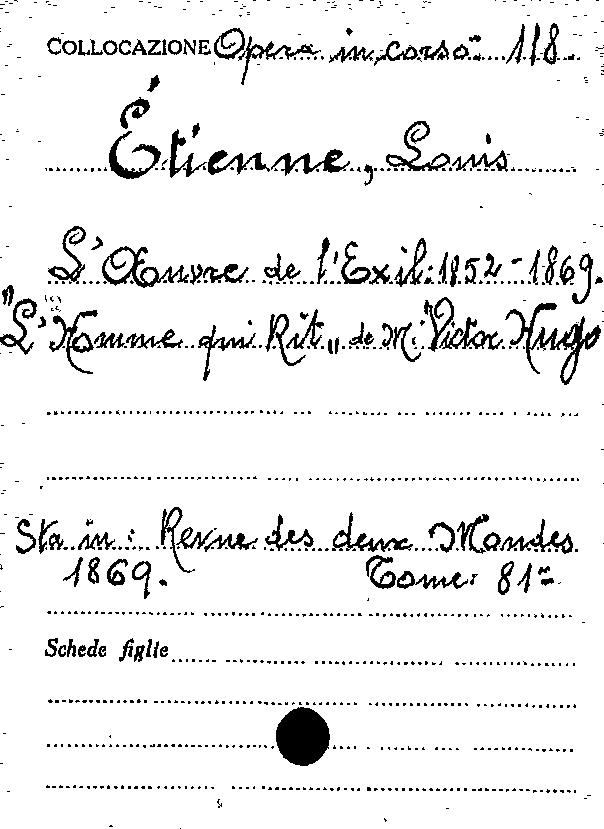 COLLOCAZIONE Opera in corso 118
Étienne, Louis
L'Œuvre de l'Exil: 1852 - 1869.
"L'Homme qui Rit" de M. Victor Hugo
Sta in: Revue des deux Mondes
1869. Tome: 81
Schede figlie